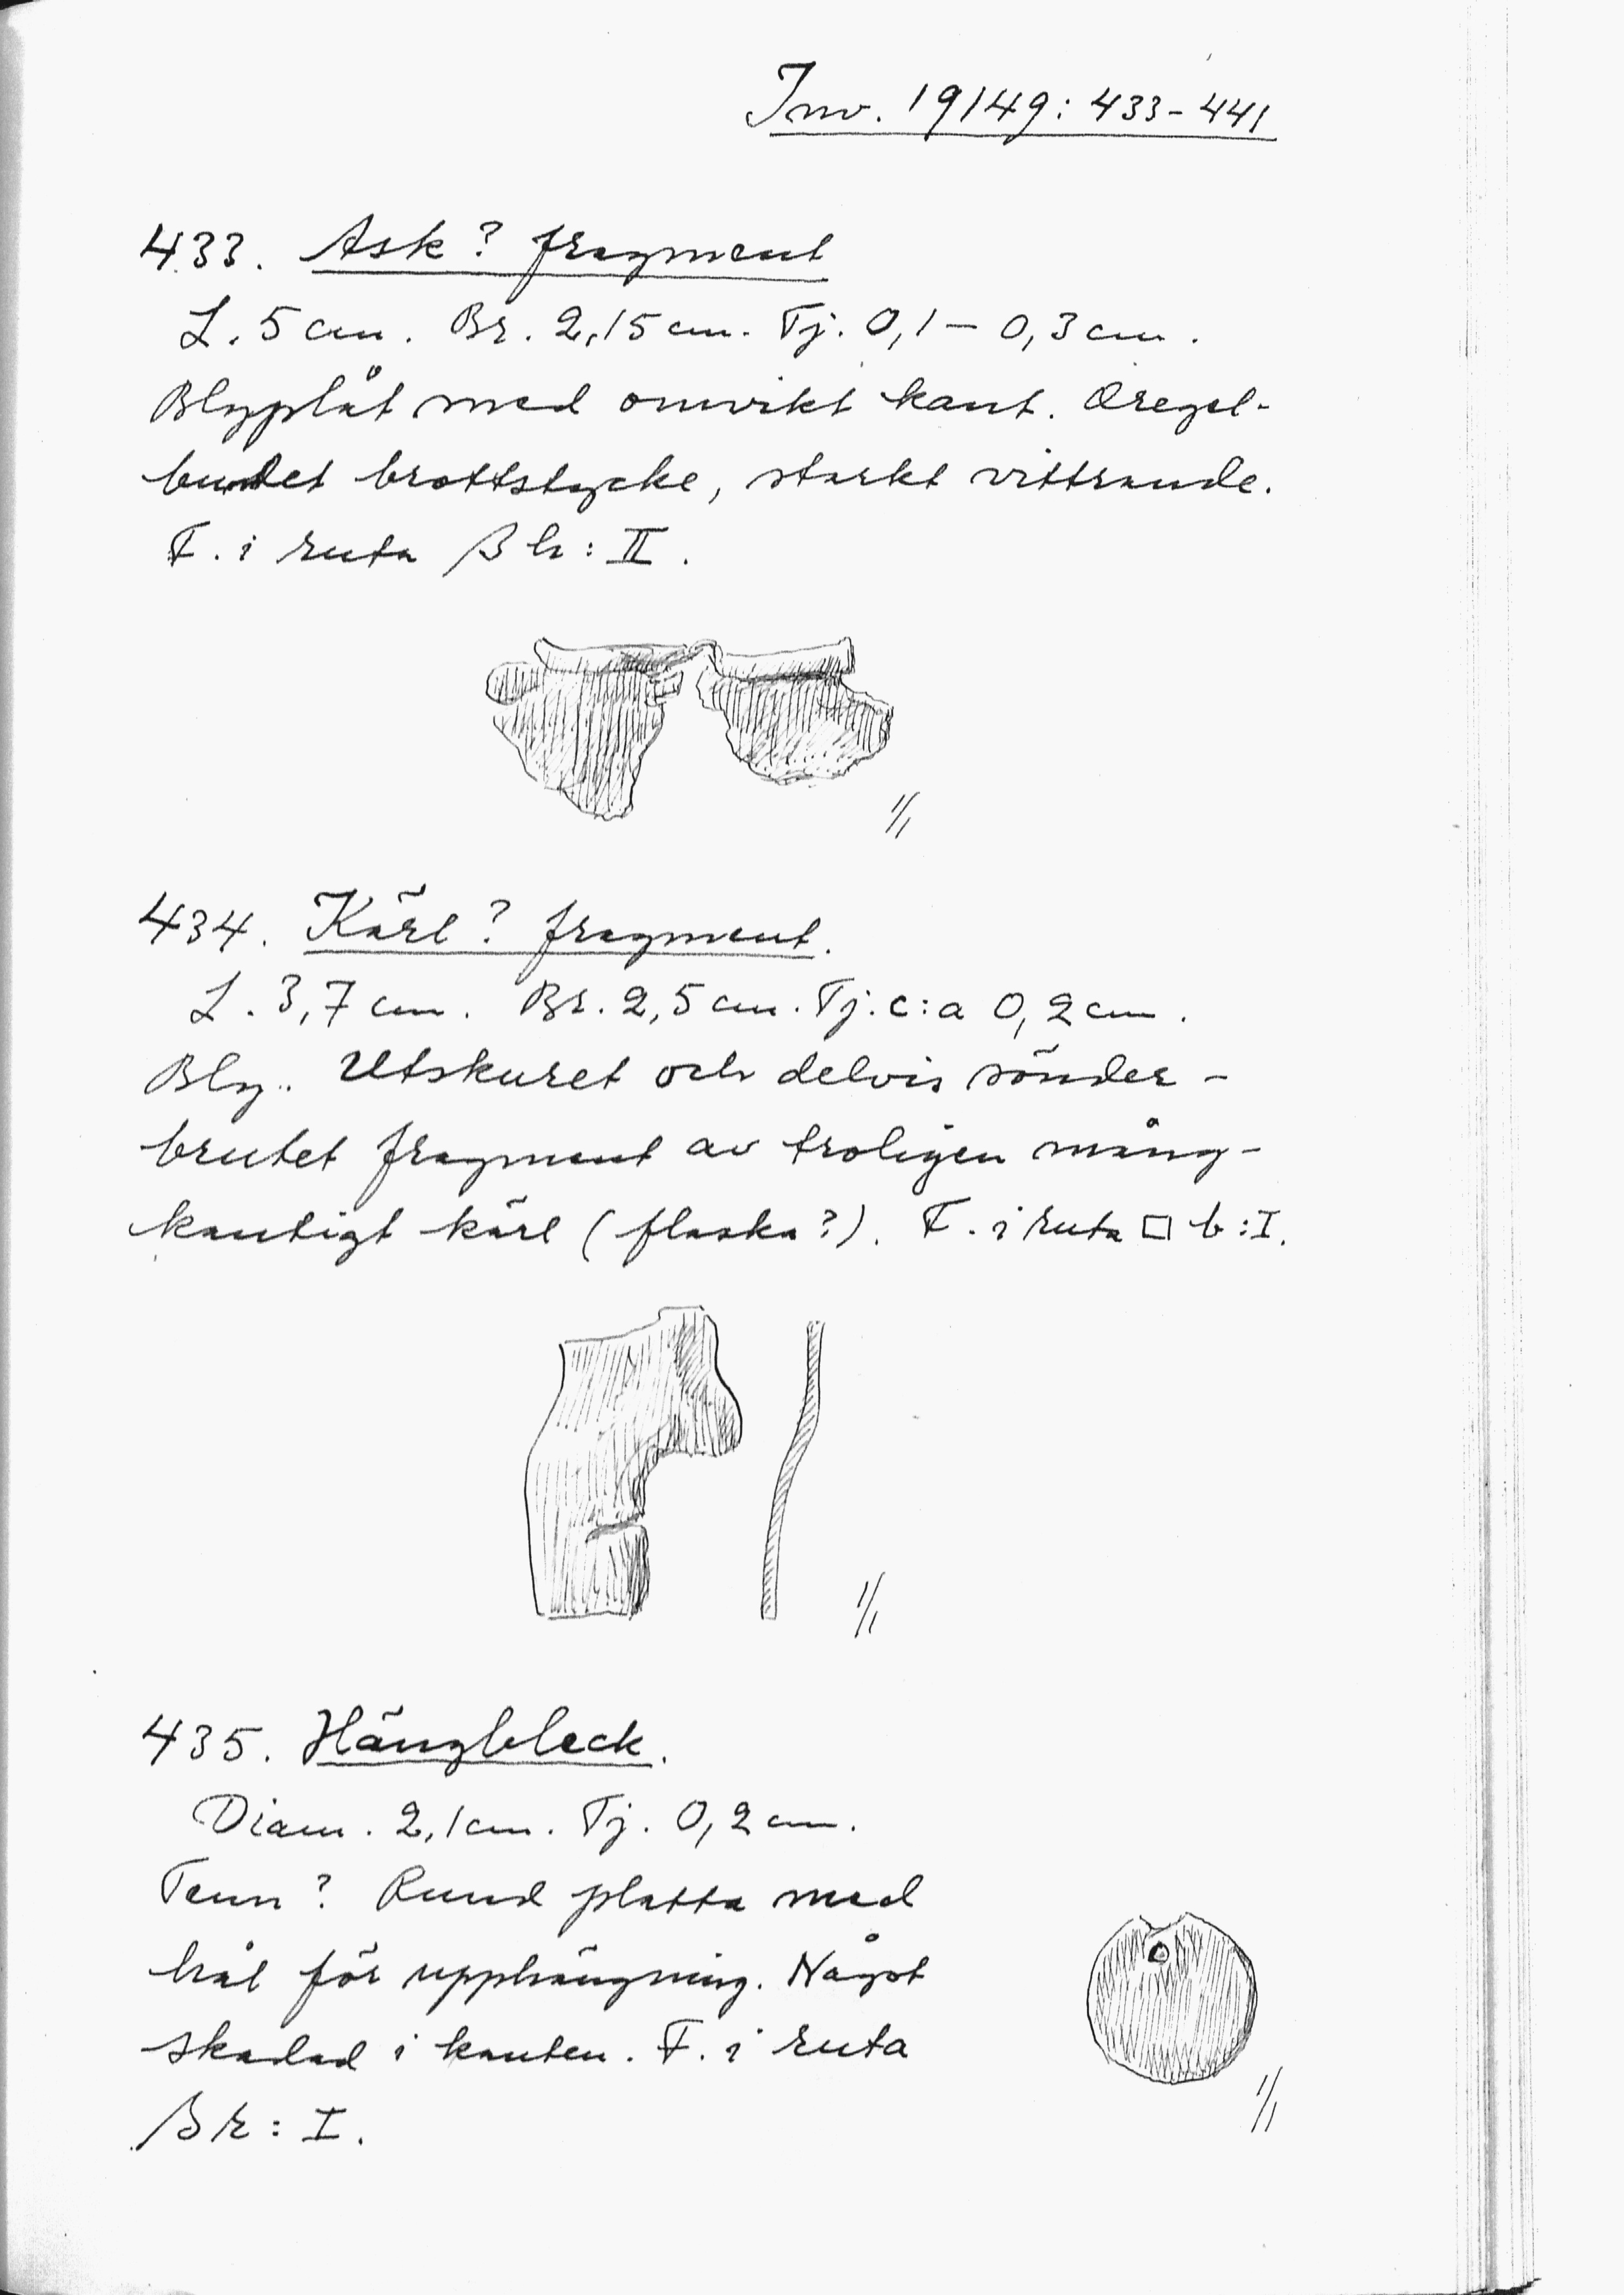 Inv. 19149: 433-441
433. Ask? fragment
L. 5 cm. Br. 2,15 cm. Tj. 0,1 – 0,3 cm.
Blyplåt med omvikt kant. Oregel-
bundet brottstycke, starkt vittrande.
F. i ruta βh: II.
1/1
434. Kärl? fragment.
L. 3,7 cm. Br. 2,5 cm. Tj. c:a 0,2 cm.
Bly. Utskuret och delvis sönder-
brutet fragment av troligen mång-
kantigt kärl (flaska?). F. i ruta □ b:I.
1/1
435. Hängbleck.
Diam. 2,1 cm. Tj. 0,2 cm.
Tenn? Rund platta med
hål för upphängning. Något
skadad i kanten. F. i ruta
βk: I.
1/1